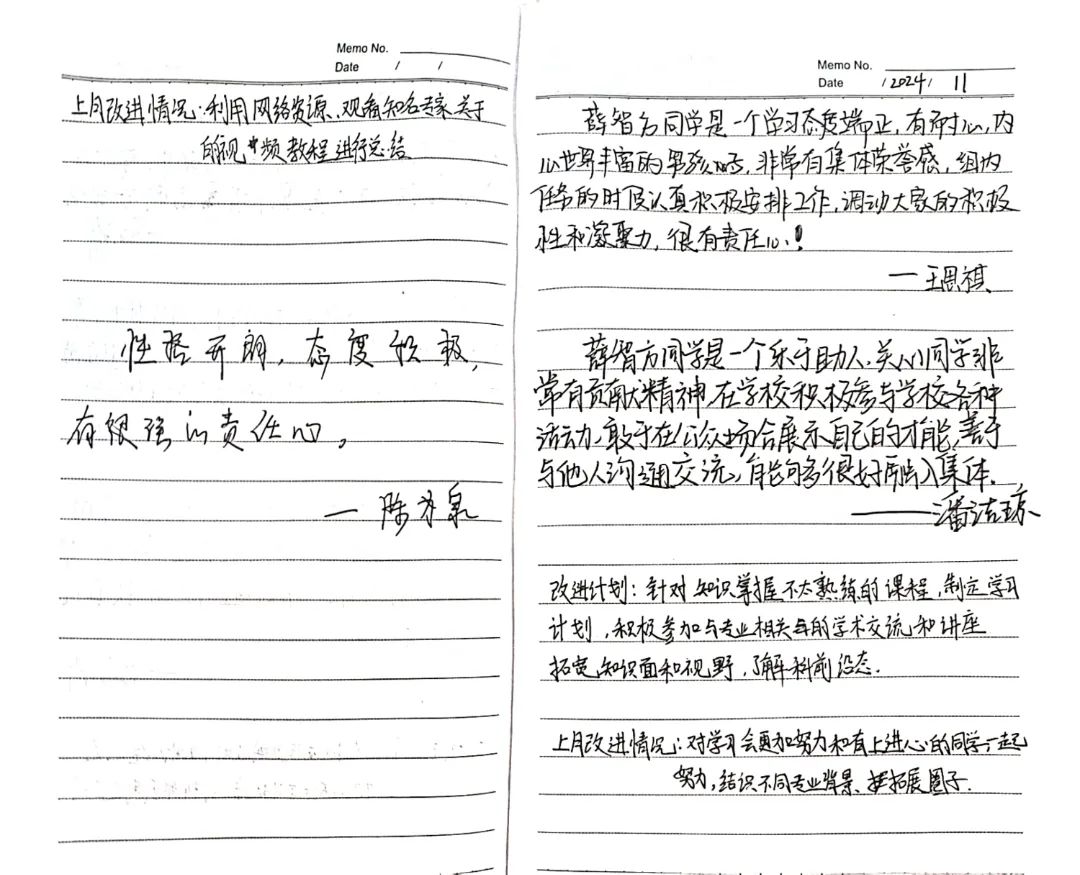 Memo No.
Date / /
上月改进情况:利用网络资源、观看知名专家关于
的视频教程进行总结
性格开朗,态度积极,
有很强的责任心。
— 陈
Memo No.
Date / 2024 / 11
薛智方同学是一个学习态度端正,有耐心,内
心世界丰富的男孩,非常有集体荣誉感,组内
任务的时候认真积极安排工作,调动大家的积极
性和凝聚力,很有责任心!
— 王思祺
薛智方同学是一个乐于助人、关心同学非
常有贡献精神,在学校积极参与学校各种
活动,敢于在公众场合展示自己的才能,善于
与他人沟通交流,能够很好融入集体.
——潘洁琼
改进计划:针对知识掌握不太熟练的课程,制定学习
计划,积极参加与专业相关的学术交流和讲座
拓宽知识面和视野,了解科前沿态.
上月改进情况:对学习会更加努力和有上进心的同学一起
努力,结识不同专业背景、拓展圈子.